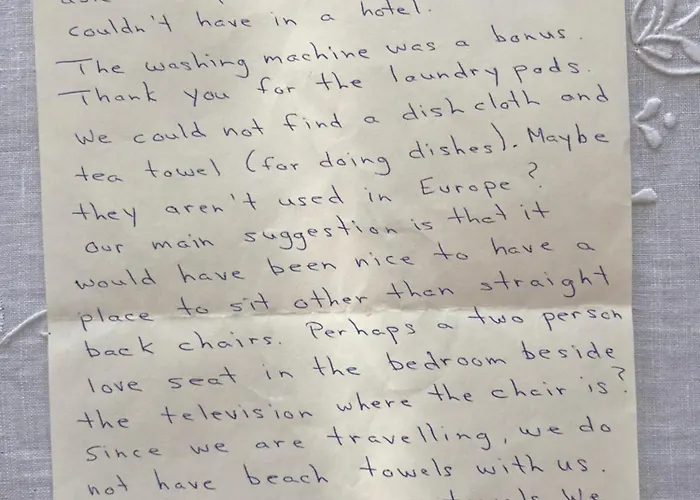 couldn't have in a hotel.
The washing machine was a bonus.
Thank you for the laundry pods.
We could not find a dish cloth and
tea towel (for doing dishes). Maybe
they aren't used in Europe?
Our main suggestion is that it
would have been nice to have a
place to sit other than straight
back chairs. Perhaps a two person
love seat in the bedroom beside
the television where the chair is?
Since we are travelling, we do
not have beach towels with us.
We